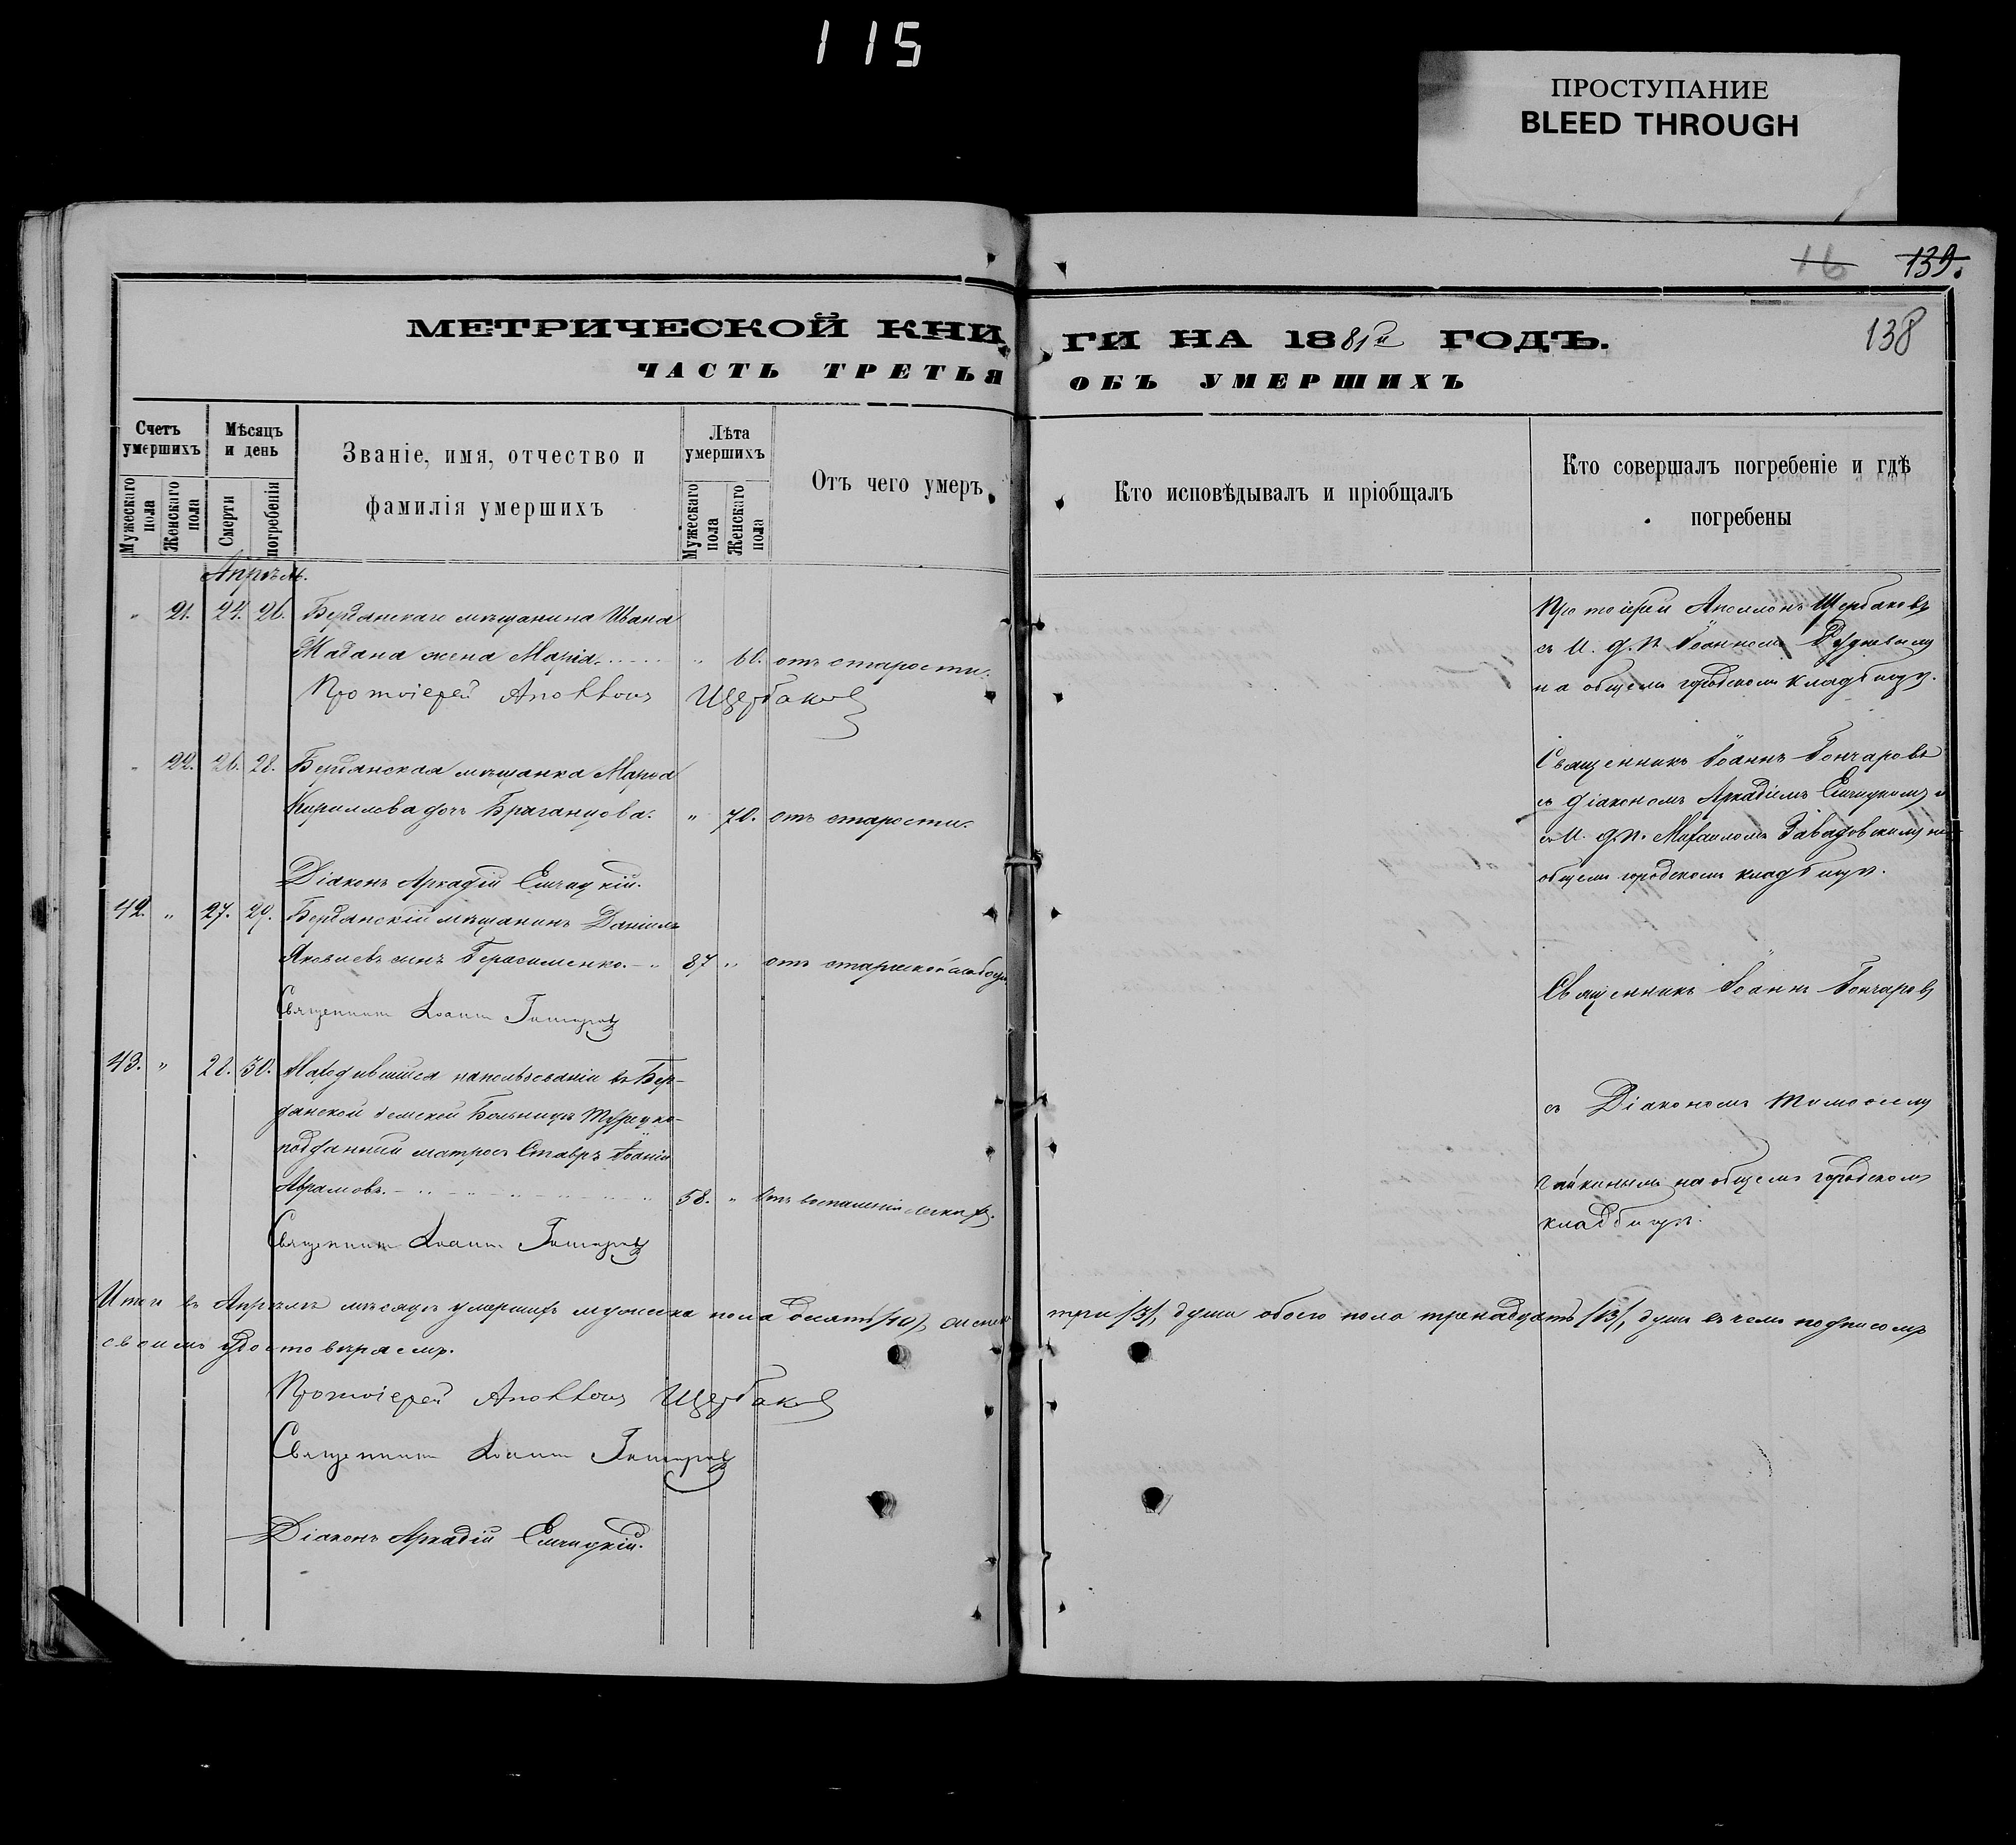 115
ПРОСТУПАНИЕ
BLEED THROUGH
16 139.
138
МЕТРИЧЕСКОЙ КНИГИ НА 1881й ГОДЪ.
ЧАСТЬ ТРЕТЬЯ ОБЪ УМЕРШИХЪ
Счетъ умершихъ
Мужескаго пола
Женскаго пола
Мѣсяцъ и день
Смерти
погребенія
Званіе, имя, отчество и
фамилія умершихъ
Лѣта умершихъ
Мужескаго пола
Женскаго пола
Отъ чего умеръ
Кто исповѣдывалъ и пріобщалъ
Кто совершалъ погребеніе и гдѣ
погребены
Апрѣль.
" 21. 24. 26. Бердянскаго мѣщанина Ивана
Жадана жена Марія " 60. отъ старости.
Протоіерей Аполлонъ Щербаковъ
Протоіерей Аполлонъ Щербаковъ
съ И. д. П. Іоанномъ
на общемъ городскомъ кладбищѣ.
" 22. 26. 28. Бердянская мѣщанка Марѳа
Кириллова дочь Браганцова. " 70. отъ старости.
Діаконъ Аркадій
Священникъ Іоаннъ Гончаровъ
съ Діакономъ Аркадіемъ и
съ И. д. П. Михаиломъ Завадовскимъ на
общемъ городскомъ кладбищѣ.
42. " 27. 29. Бердянскій мѣщанинъ Даніилъ
Яковлевъ сынъ Герасименко. 87 " отъ старческой
Священникъ Іоаннъ Гончаровъ
Священникъ Іоаннъ Гончаровъ
43. " 28. 30. Находившійся на пользованіи въ Бер-
дянской Земской Больницѣ Турецко-
подданный матросъ Ставръ Іоаннъ
Аврамовъ. 58. " Отъ воспаленія легкихъ.
Священникъ Іоаннъ Гончаровъ
съ Діакономъ Тимоѳеемъ
на общемъ городскомъ
кладбищѣ.
Итого въ Апрѣлѣ мѣсяцѣ умершихъ мужеска пола десять /10/, женска три /3/, души обоего пола тринадцать /13/, душъ въ чемъ подписомъ
своимъ удостовѣряемъ.
Протоіерей Аполлонъ Щербаковъ
Священникъ Іоаннъ Гончаровъ
Діаконъ Аркадій